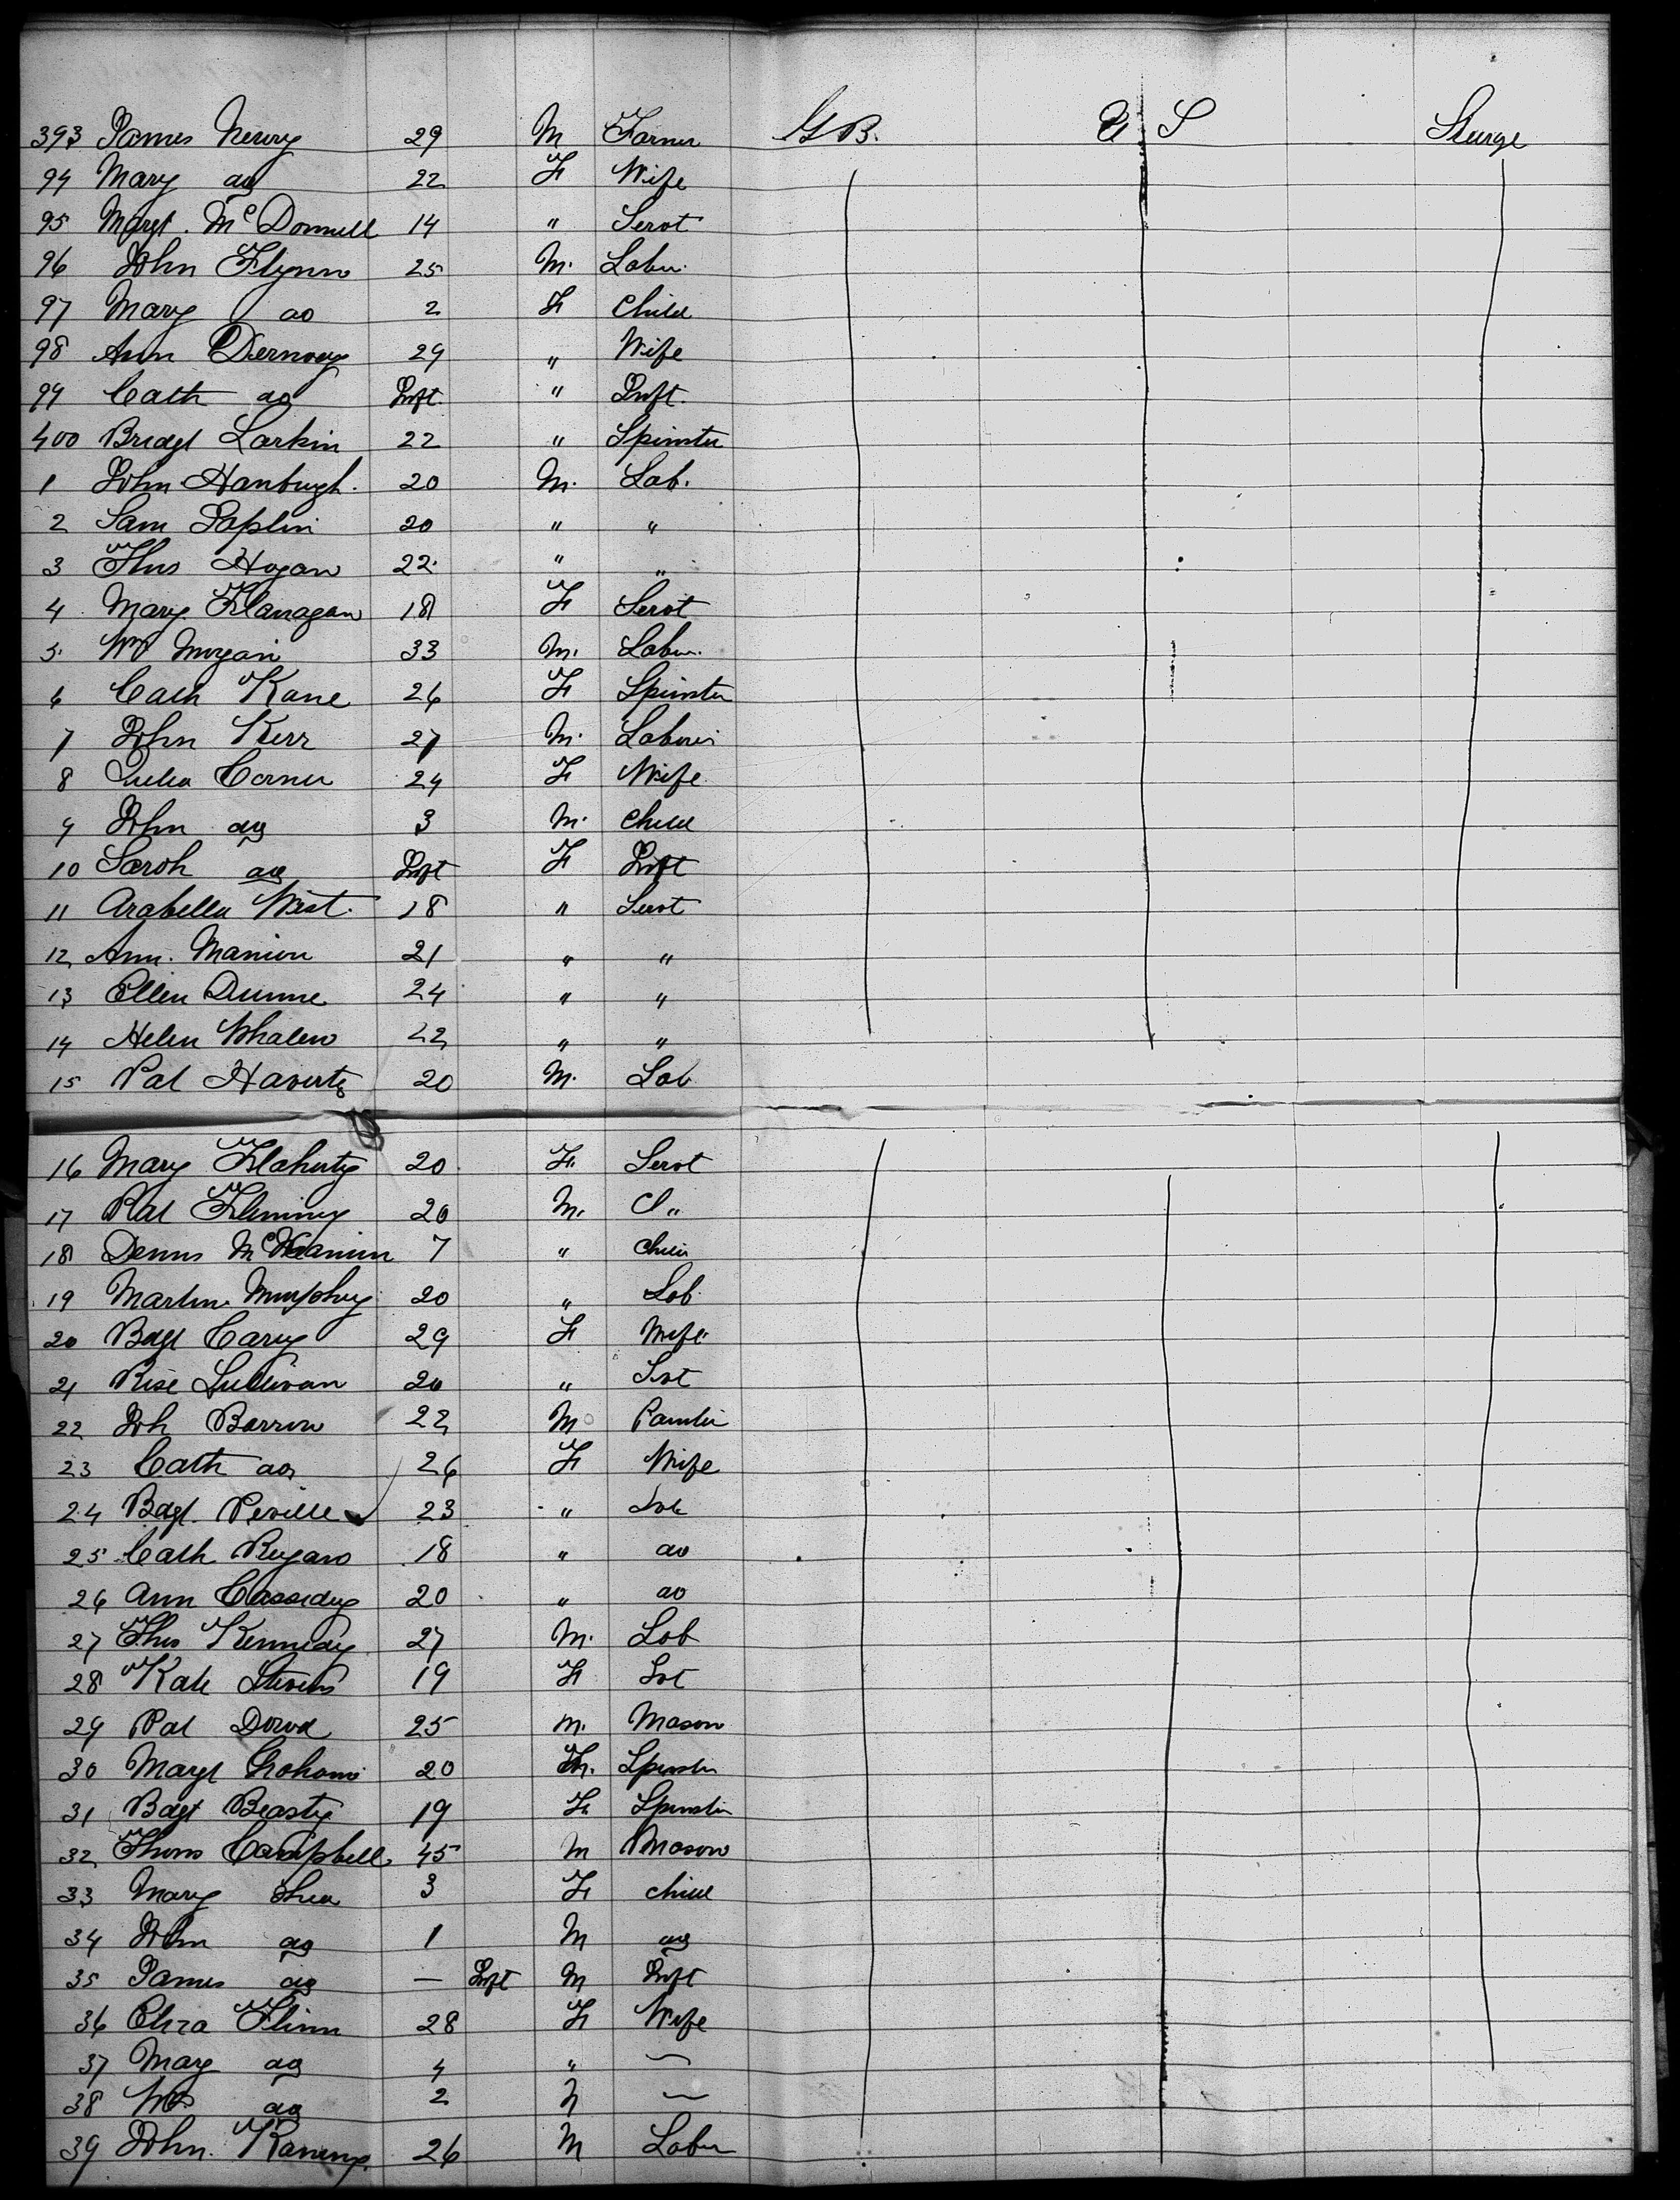 393 James Newry 29 M Farmer G B. U S Steerge
94 Mary do 22 F Wife
95 Margt. McDonnell 14 " Servt
96 John Flynn 25 M. Labr.
97 Mary do 2 F Child
98 Ann Dernody 29 " Wife
99 Cath do Inft. " Inft.
400 Bridgt Larkin 22 " Spinster
1 John Hanbugh. 20 M. Lab.
2 Sam Joplin 20 " "
3 Thos Hogan 22 " "
4 Mary Flanagan 18 F Servt
5 Wm Morgan 33 M. Labr.
6 Cath Kane 26 F Spinster
7 John Kerr 27 M. Laborer
8 Julia Corner 24 F Wife
9 John do 3 M. Child
10 Sarah do Inft F Inft
11 Arabella West. 18 " Servt
12 Ann. Manion 21 " "
13 Ellen Dunne 24 " "
14 Helen Whalen 22 " "
15 Pat Haverty 20 M. Lab
16 Mary Flaherty 20 F. Servt
17 Pat Fleming 20 M. "
18 Denns 7 " Child
19 Martin Murphy 20 " Lab.
20 Bdgt Cary 29 F Wife
21 Rose Sullivan 20 " Svt
22 Joh Barron 22 M Painter
23 Cath do 26 F Wife
24 Bdgt. Neville 23 "
25 Cath Regan 18 " do
26 Ann Cassidy 20 " do
27 Thos Kennedy 27 M. Lab
28 Kate Stevens 19 F Svt
29 Pat Dowd 25 M. Mason
30 Margt Graham 20 Spinster
31 Bdgt Beasty 19 F. Spinster
32 Thoms Campbell 45 M Mason
33 Mary Shea 3 F child
34 John do 1 M do
35 James do — Inft M Inft
36 Eliza Flinn 28 F Wife
37 Mary do 4 " —
38 Wm do 2 M —
39 John. 26 M Labr